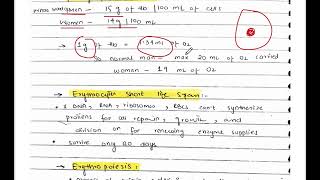 15 g of Hb | 100 mL of cells
Women - 14g | 100 mL
→ 1g of Hb = 1.34 ml of O2
so normal man - max 20 mL of O2 carried
woman - 19 mL of O2
→ Erythrocyte Short life Span:-
DNA, RNA, ribosomes, RBCs can't synthesize
proteins for cell repair, growth, and
division or for renewing enzyme supplies
survive only 120 days
→ Erythropoiesis: